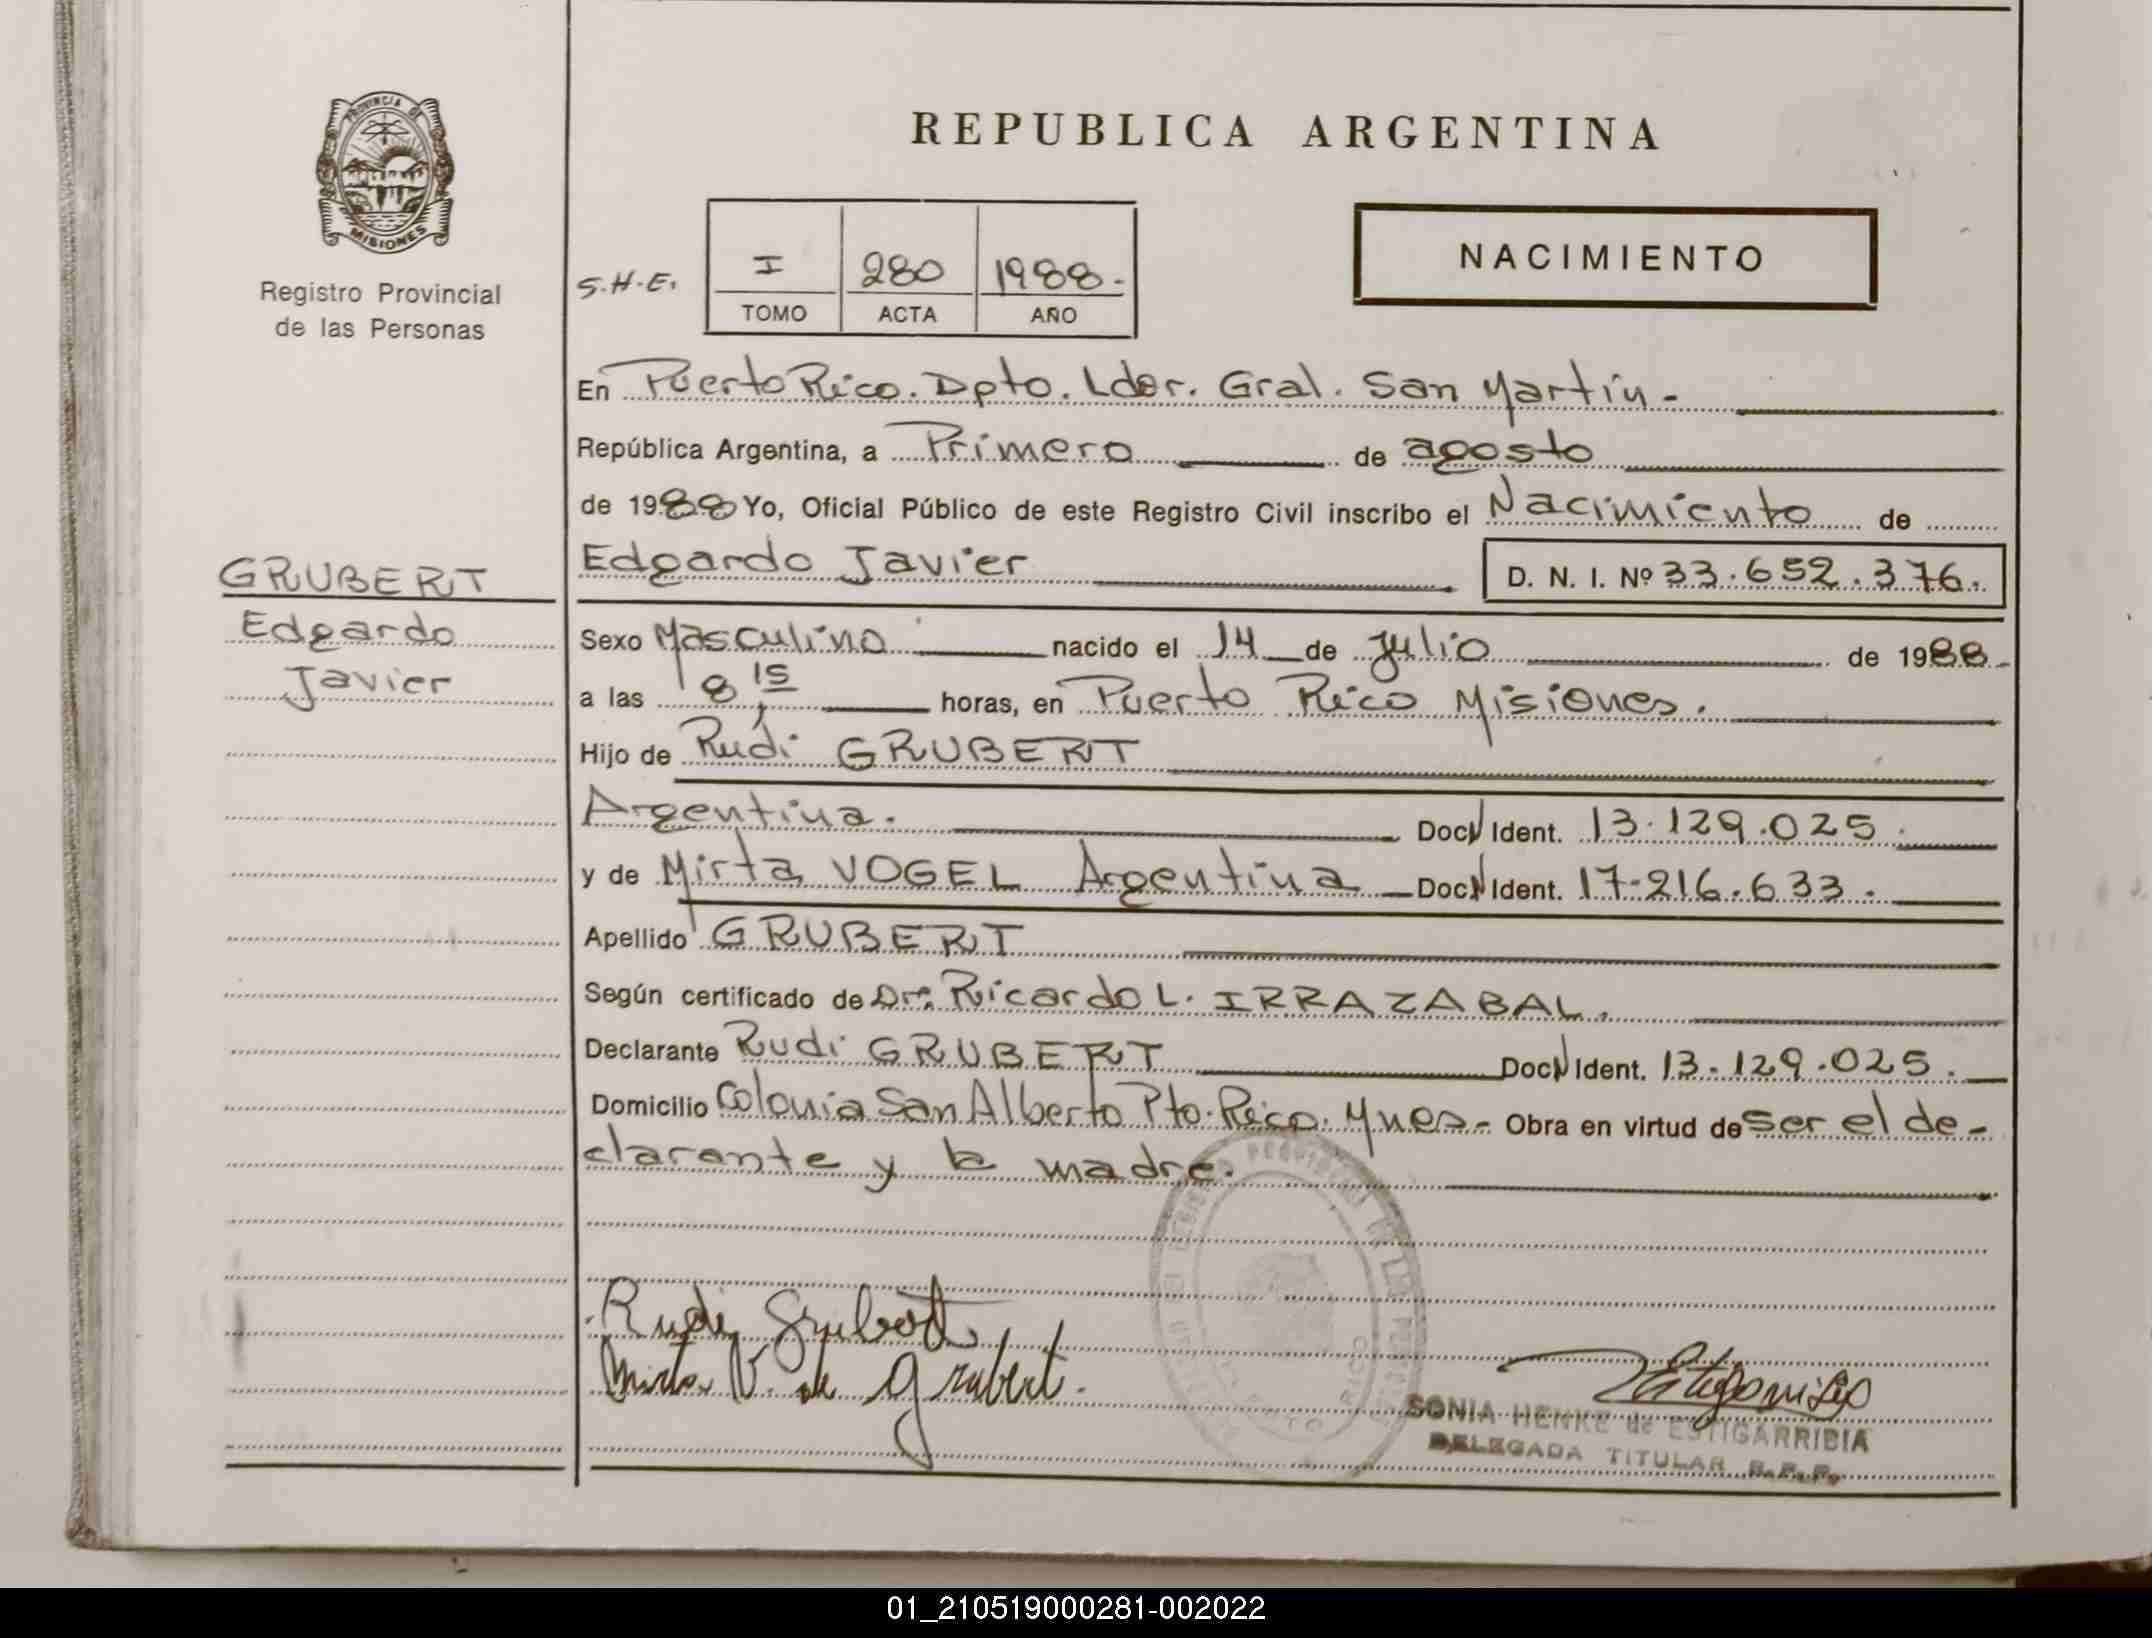 PROVINCIA DE
MISIONES
Registro Provincial
de las Personas
REPUBLICA ARGENTINA
NACIMIENTO
S.H.E.
I 280 1988.-
TOMO ACTA AÑO
En Puerto Rico. Dpto. Ldor. Gral. San Martín.-
República Argentina, a Primero de agosto
de 1988 Yo, Oficial Público de este Registro Civil inscribo el Nacimiento de
Edgardo Javier D. N. I. Nº 33.652.376.
GRUBERT
Edgardo
Javier
Sexo Masculino nacido el 14 de Julio de 1988.-
a las 8,15 horas, en Puerto Rico Misiones.
Hijo de Rudi GRUBERT
Argentina. Doc. Ident. 13.129.025.
y de Mirta VOGEL Argentina Doc. Ident. 17.216.633.
Apellido GRUBERT
Según certificado de Dr. Ricardo L. IRRAZABAL.
Declarante Rudi GRUBERT Doc. Ident. 13.129.025.
Domicilio Colonia San Alberto Pto. Rico. Mnes.- Obra en virtud de ser el de-
clarante y la madre.
Rudi Grubert
Mirta V. de Grubert.
PUERTO RICO
SONIA HENKE de ESTIGARRIBIA
DELEGADA TITULAR R.P.P.
01_210519000281-002022